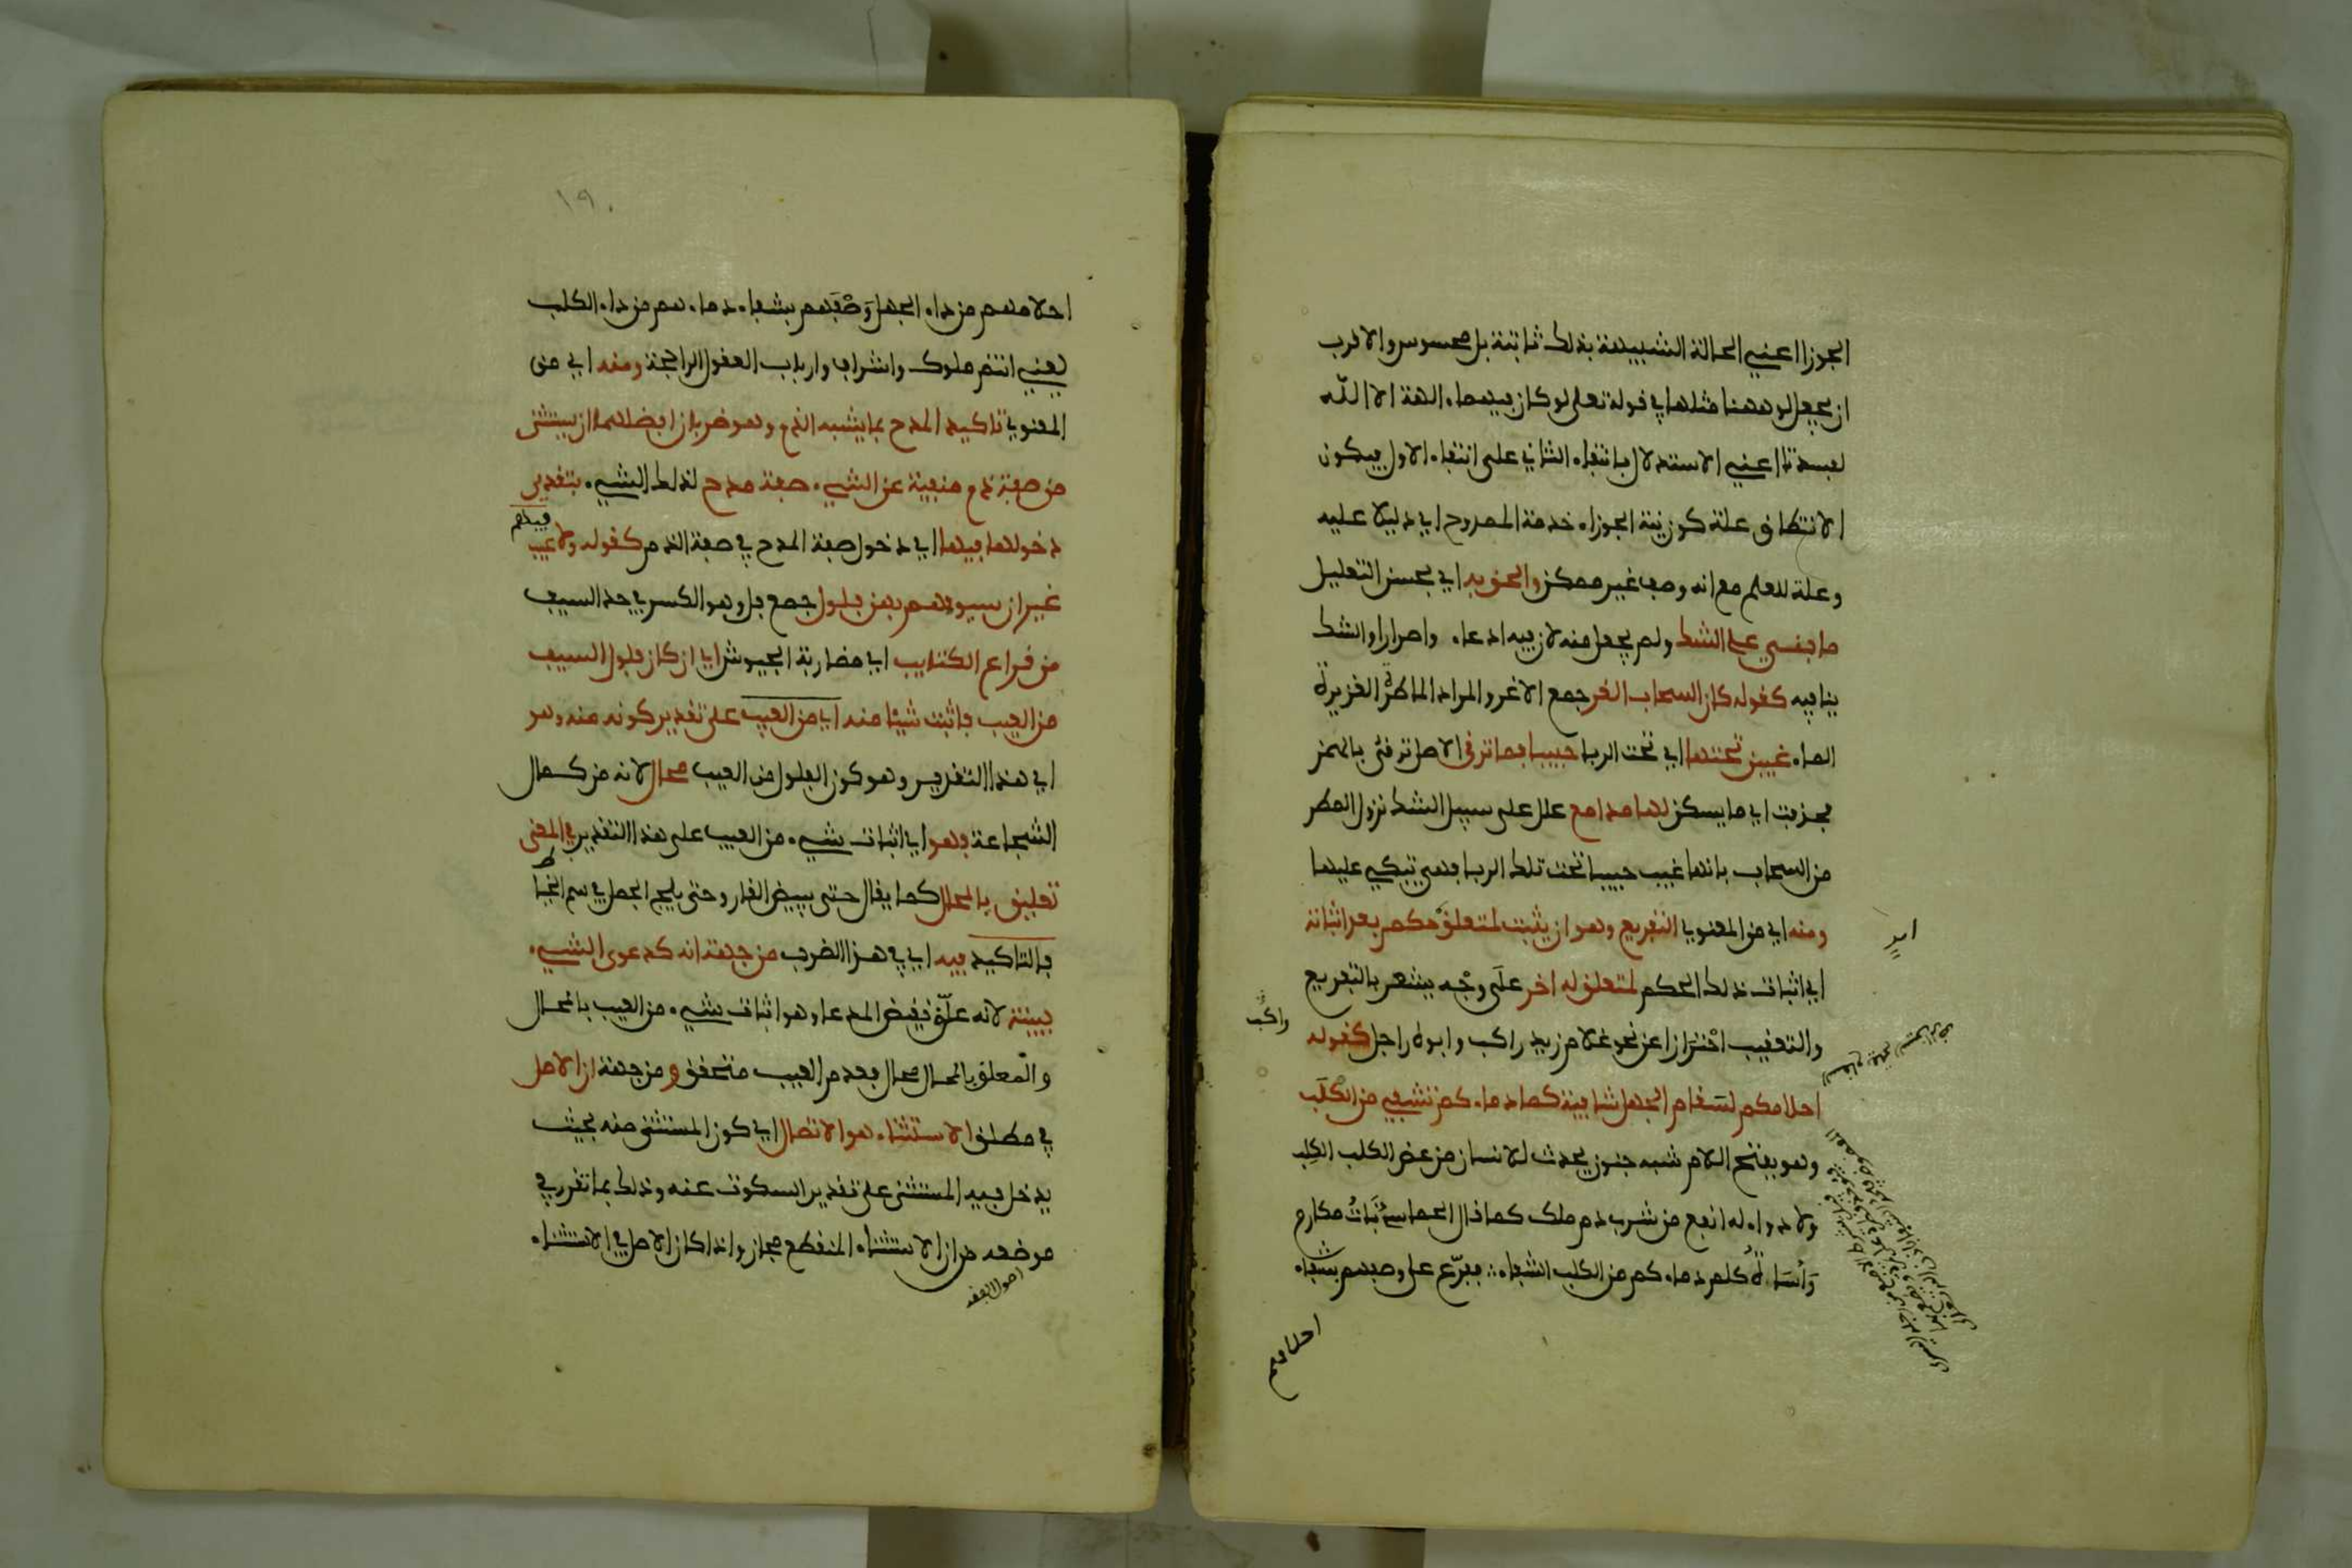 الجوزا اعني الحالة الشبيهة بذلك ثابتة بل محسوس والاقرب
ان يجعل لو ههنا مثلها في قوله تعلى لو كان فيهما ءالهة الا الله
لفسدتا اعني الاستدلال بانتفاء الثاني على انتفاء الاول فيكون
الانتطاق علة كون نية الجوزاء خدمة الممدوح اي دليلا عليه
وعلة للعلم مع انه وصف غير ممكن والحق به اي بحسن التعليل
ما بني على الشك ولم يجعل منه لان فيه ادعاء واصرارا والشك
ينافيه كقوله كان السحاب الغر جمع الاغر والمراد الماطرة الغزيرة
الماء غيبن تحتها اي تحت الربا حبيبا فما ترقى الاصل ترقئ بالهمز
فخففت اي ما يسكن لها مدامع علل على سبيل الشك نزول المطر
من السحاب بانها غيبت حبيبا تحت تلك الربا فهي تبكي عليها
ومنه اي من المعنوي التفريع وهو ان يثبت لمتعلق حكم بعد اثباته
اي اثبات ذلك الحكم لمتعلق له اخر على وجه يشعر بالتفريع
والتعقيب احترازا عن نحو غلام زيد راكب وابوه راجل كقوله
احلامكم لسقام الجهل شافية كما دماءكم تشفي من الكلب
وهو بفتح اللام شبه جنون يحدث للانسان من عض الكلب الكلِب
ولا دواء له انفع من شرب دم ملك كما قال الحماسي بُناتُ مكارم
وأُسَاةُ كلم دماءكم من الكلب الشفاء ∴ ففرّع على وصفهم بشفاء
احلامهم
راكب
١٩٠
احلامهم من داء الجهل وَصْفَهم بشفاء دماءهم من داء الكلب
يعني انتم ملوك واشراف وارباب العقول الراجحة ومنه اي من
المعنوي تاكيد المدح بما يشبه الذم وهو ضربان افضلهما ان يستثنى
من صفة ذم منفية عن الشيء صفة مدح لذلك الشيء بتقدير
دخولها فيها اي دخول صفة المدح في صفة الذم كقوله ولا عيب
فيهم
غير ان سيوفهم بهن فلول جمع فل وهو الكسر في حد السيف
من قراع الكتايب اي مضاربة الجيوش اي ان كان فلول السيف
من العيب فاثبت شيئا منه اي من العيب على تقدير كونه منه وهو
اي هذا التقدير وهو كون الفلول من العيب محال لانه من كمال
الشجاعة فهو اي اثبات شيء من العيب على هذا التقدير في المعنى
تعليق بالمحال كما يقال حتى يبيض القار وحتى يلج الجمل في سم الخياط
فالتاكيد فيه اي في هذا الضرب من جهة انه كدعوى الشيء
ببينة لانه علّق نقيض المدعا وهو اثبات شيء من العيب بالمحال
والمعلق بالمحال محال فعدم العيب متحقق ومن جهة ان الاصل
في مطلق الاستثناء هو الاتصال اي كون المستثنى منه بحيث
يدخل فيه المستثنى على تقدير السكوت عنه وذلك بما تقرر في
موضعه من ان الاستثناء المنقطع مجاز واذا كان الاصل في الاستثناء
اصول الفقه